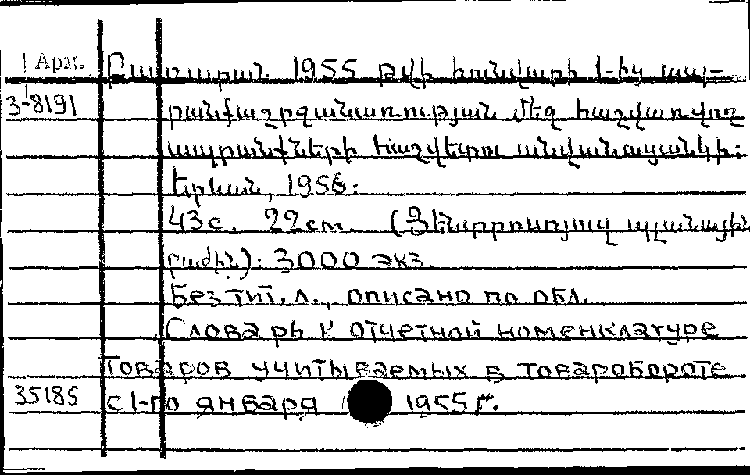 Арм. Բառարան 1955 թվի հունվարի 1-ից ապ-
3-8191 րանքաշրջանառության մեջ հաշվառվող
ապրանքների հաշվետու անվանացանկի:
Երևան, 1956:
43с. 22см. (Ցենտրոսոյուզ պլանային
բաժին): 3000 экз.
Без тит. л., описано по обл.
Словарь к отчетной номенклатуре
товаров учитываемых в товарообороте
35185 с 1-го января 1955 г.